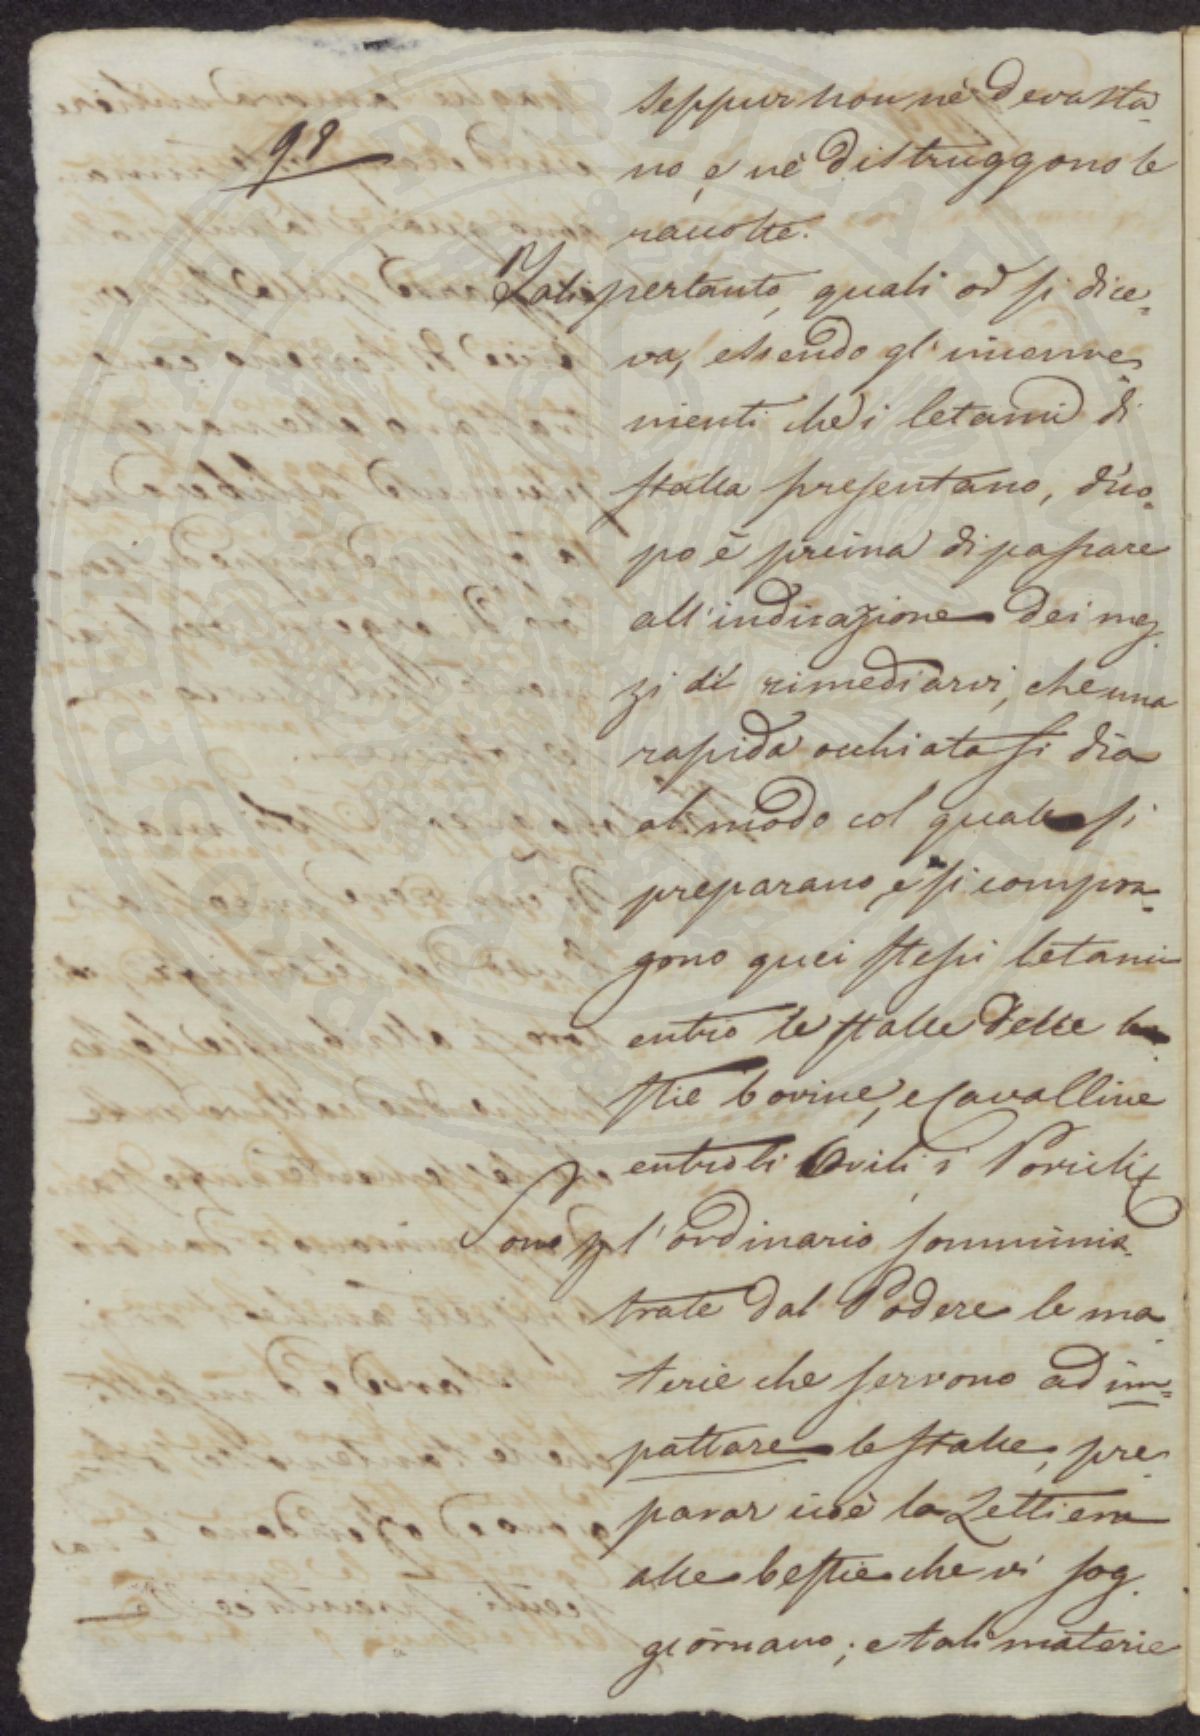 98
seppur non nè devasta-
no, e nè distruggono le
raccolte.
Tali pertanto, quali or si dice-
va, essendo gl'inconve-
nienti che i letami di
stalla presentano, d'uo-
po è preima di passare
all'indicazione dei mez-
zi di rimediarvi, che una
rapida occhiata si dia
al modo col quale si
preparano, e si compon-
gono quei stessi letami
entro le stalle delle be-
stie bovine, e Cavalline
entro li Ovili, i Porcili
Sono p l'ordinario somminis-
trate dal Podere le ma-
terie che servono ad im-
pattare le stalle, pre-
parar cioè la Lettiera
alle bestie che vi sog-
giornano; e tali materie
PROSPERITATI PUBLICAE AUGENDAE